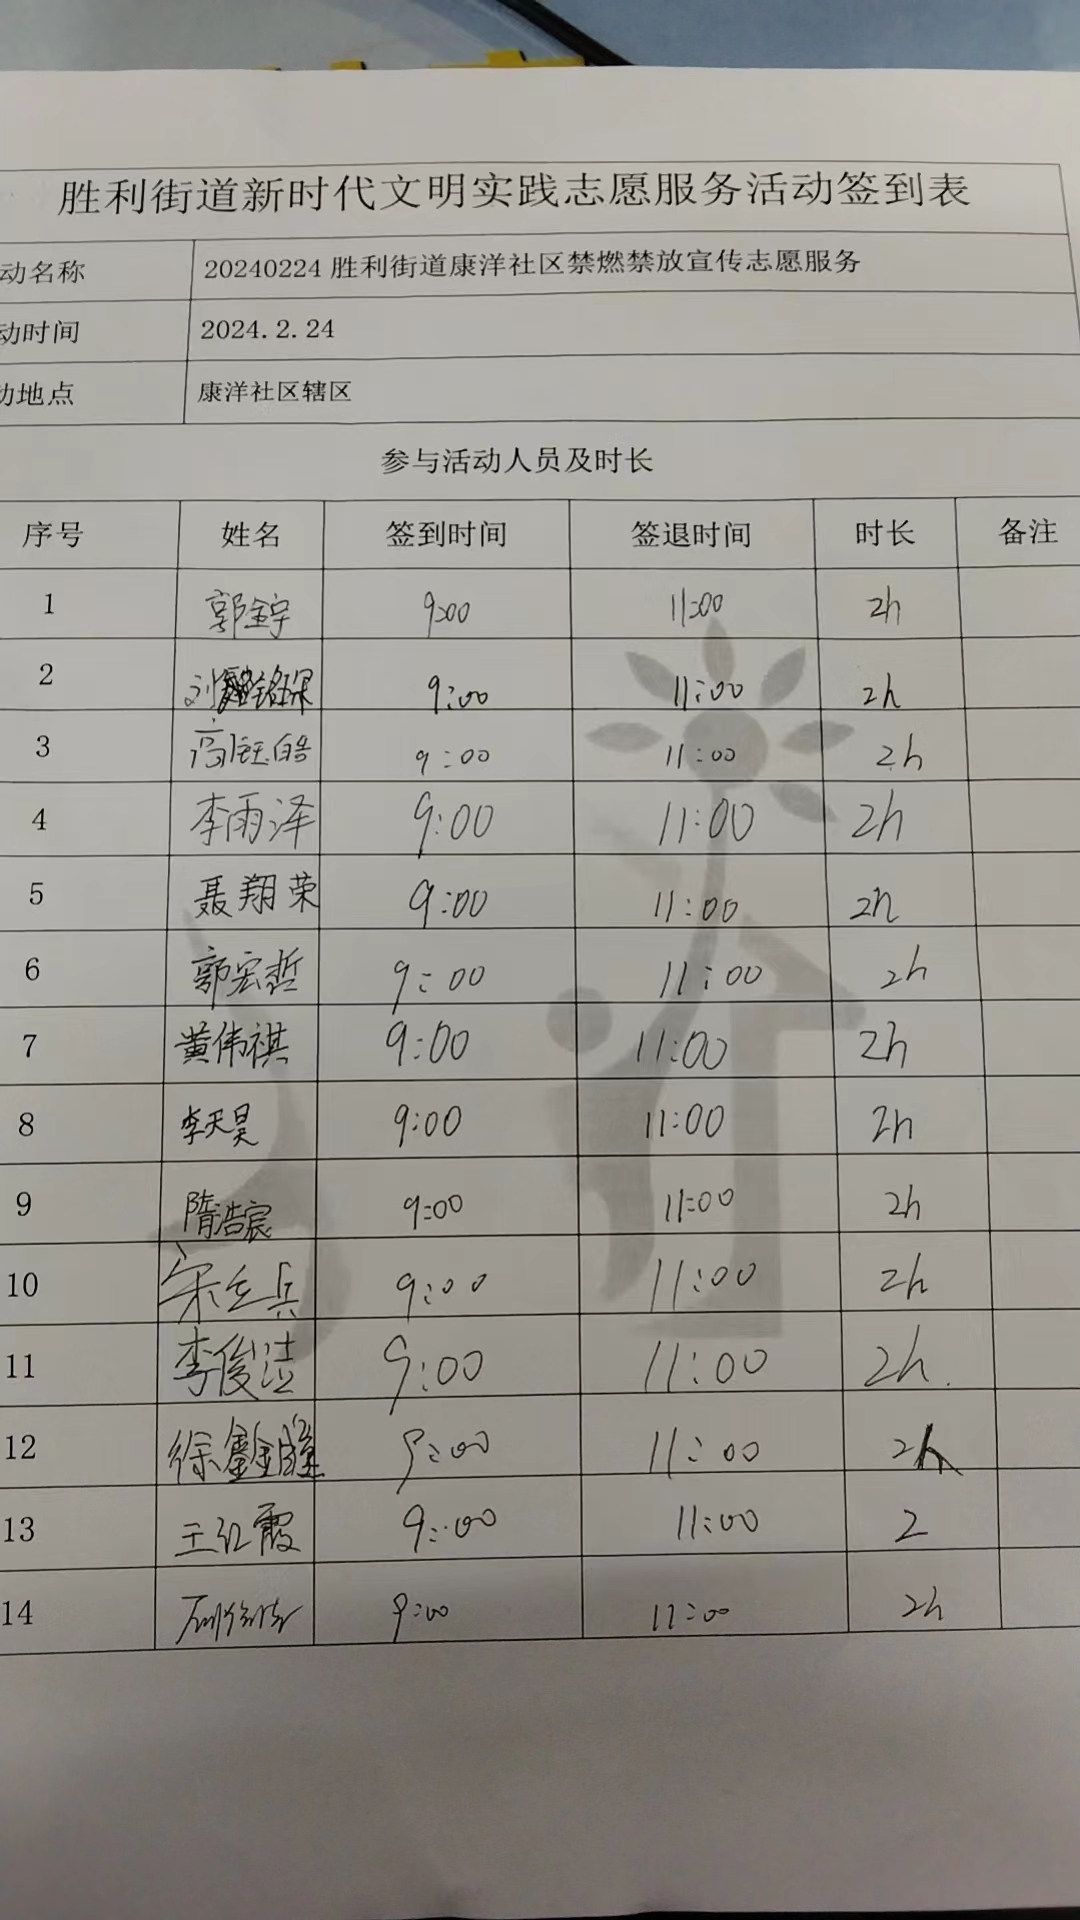 胜利街道新时代文明实践志愿服务活动签到表
动名称 20240224 胜利街道康洋社区禁燃禁放宣传志愿服务
动时间 2024.2.24
动地点 康洋社区辖区
参与活动人员及时长
序号 姓名 签到时间 签退时间 时长 备注
1 郭金宇 9:00 11:00 2h
2 刘 铭琛 9:00 11:00 2h
3 高钰皓 9:00 11:00 2h
4 李雨泽 9:00 11:00 2h
5 聂翔荣 9:00 11:00 2h
6 郭宏哲 9:00 11:00 2h
7 黄伟祺 9:00 11:00 2h
8 李天昊 9:00 11:00 2h
9 隋浩宸 9:00 11:00 2h
10 宋立兵 9:00 11:00 2h
11 李俊洁 9:00 11:00 2h.
12 徐鑫瞳 9:00 11:00 2h
13 王红霞 9:00 11:00 2
14 9:00 11:00 2h